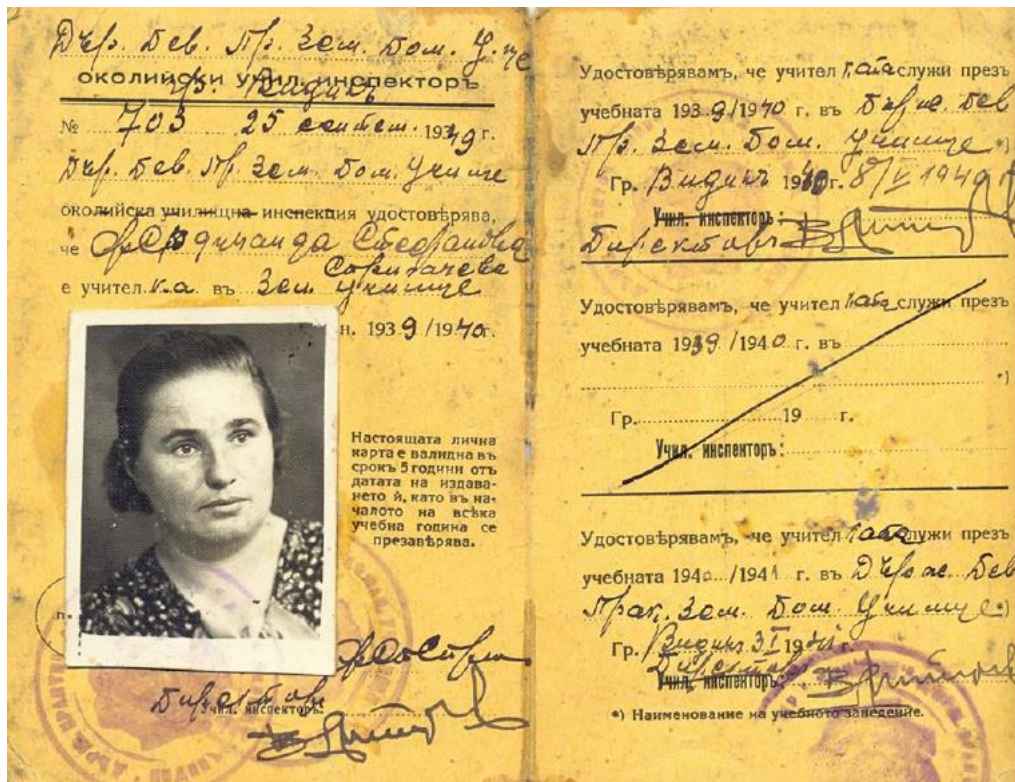 Дър. Дев. Пр. Зем. Дом. У-ще
околийски учил. инспекторъ
гр. Видинъ
№ 703 25 септем. 1939 г.
Дър. Дев. Пр. Зем. Дом. Училище
околийска училищна инспекция удостовѣрява,
че Фердинанда Стефанова
е учител.ка въ Зем. Училище
н. 1939/1940г.
Настоящата лична
карта е валидна въ
срокъ 5 години отъ
датата на издава-
нето ѝ, като въ на-
чалото на всѣка
учебна година се
презавѣрява.
Директоръ
Учил. инспекторъ:
Удостовѣрявамъ, че учител ката служи презъ
учебната 1939/1940 г. въ Държ. Дев
Пр. Зем. Дом. Училище *)
Гр. Видинъ 1940г.
Учил. инспекторъ:
Директоръ
Удостовѣрявамъ, че учител ката служи презъ
учебната 1939/1940 г. въ
*)
Гр. 19 г.
Учил. инспекторъ:
Удостовѣрявамъ, че учител ката служи презъ
учебната 1940/1941 г. въ Държ. Дев
Прак. Зем. Дом. Училище *)
Гр. Видинъ 1941 г.
Директоръ
Учил. инспекторъ:
*) Наименование на учебното заведение.